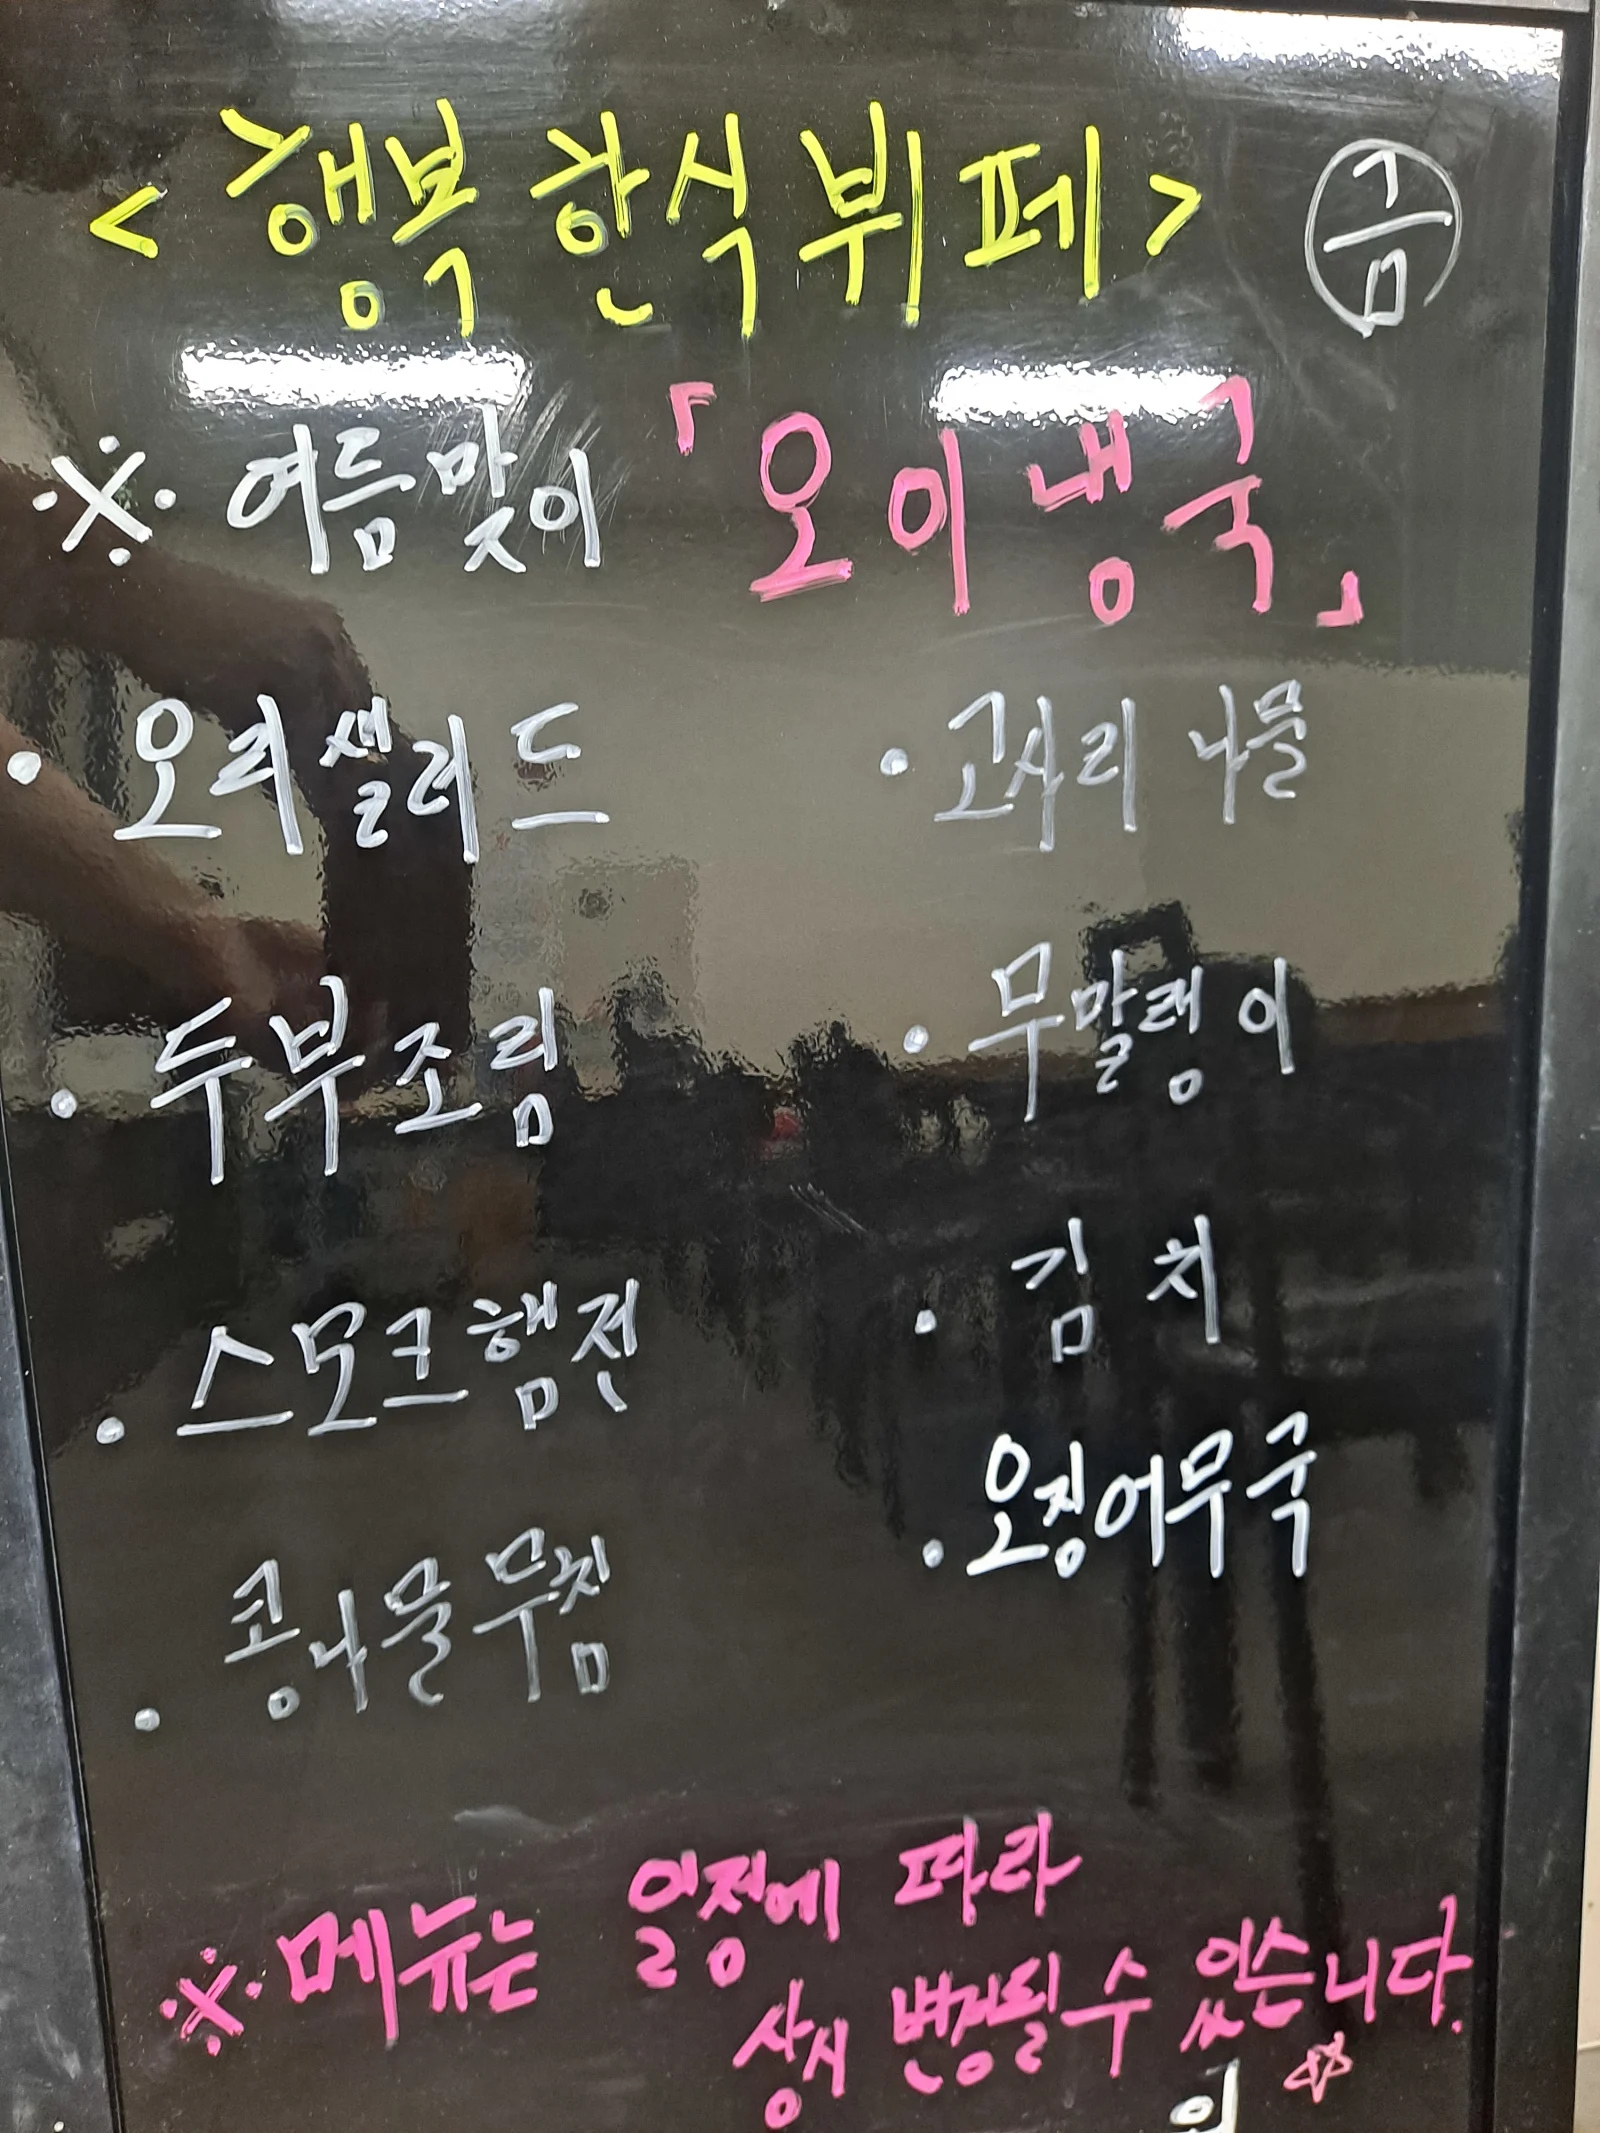 <행복 한식 뷔페> 금
※ 여름맞이 「오이냉국」
· 오리샐러드
· 고사리 나물
· 두부조림
· 무말랭이
· 스모크햄전
· 김치
· 콩나물무침
· 오징어무국
※ 메뉴는 일정에 따라
상시 변경될 수 있습니다.